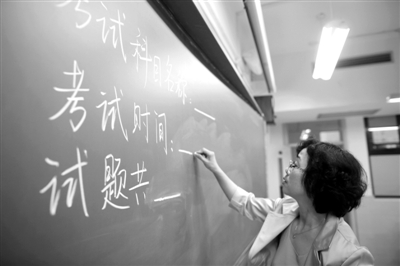 考试科目名称：__
考试时间：__
试题共__